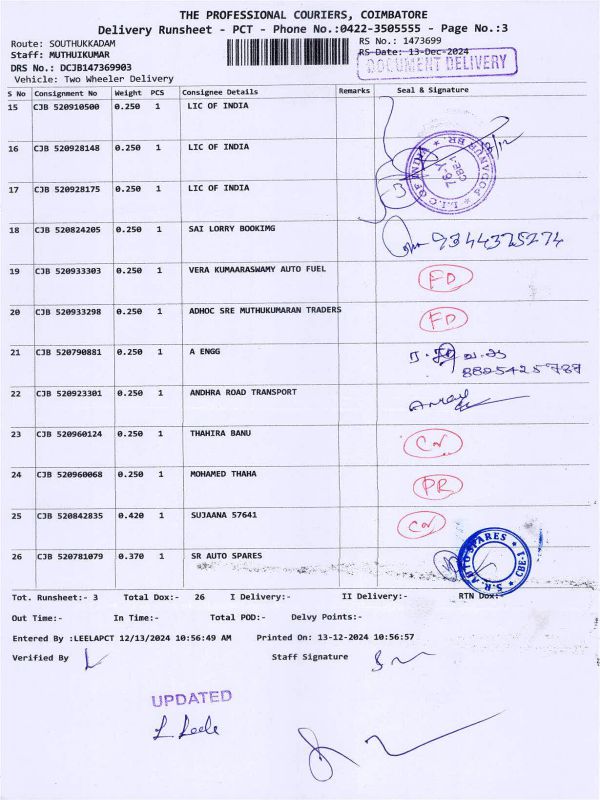 THE PROFESSIONAL COURIERS, COIMBATORE
Delivery Runsheet - PCT - Phone No.:0422-3505555 - Page No.:3
Route: SOUTHUKKADAM
RS No.: 1473699
Staff: MUTHUIKUMAR
RS Date: 13-Dec-2024
DOCUMENT DELIVERY
DRS No.: DCJB147369903
Vehicle: Two Wheeler Delivery
S No Consignment No Weight PCS Consignee Details Remarks Seal & Signature
15 CJB 520910500 0.250 1 LIC OF INDIA
16 CJB 520928148 0.250 1 LIC OF INDIA
17 CJB 520928175 0.250 1 LIC OF INDIA
18 CJB 520824205 0.250 1 SAI LORRY BOOKIMG 9344375274
19 CJB 520933303 0.250 1 VERA KUMAARASWAMY AUTO FUEL FD
20 CJB 520933298 0.250 1 ADHOC SRE MUTHUKUMARAN TRADERS FD
21 CJB 520790881 0.250 1 A ENGG
8825425787
22 CJB 520923301 0.250 1 ANDHRA ROAD TRANSPORT
23 CJB 520960124 0.250 1 THAHIRA BANU
24 CJB 520960068 0.250 1 MOHAMED THAHA PR
25 CJB 520842835 0.420 1 SUJAANA 57641
26 CJB 520781079 0.370 1 SR AUTO SPARES
S.R. AUTO SPARES * CBE-1 *
Tot. Runsheet:- 3 Total Dox:- 26 I Delivery:- II Delivery:- RTN Dox:-
Out Time:- In Time:- Total POD:- Delvy Points:-
Entered By :LEELAPCT 12/13/2024 10:56:49 AM Printed On: 13-12-2024 10:56:57
Verified By Staff Signature
UPDATED